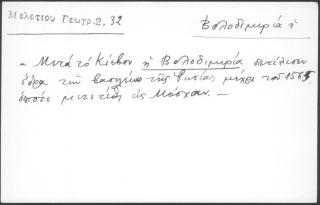 Μελετίου Γεωγρ. 2, 32
Βολοδιμηρία ἡ
– Μετὰ τὸ Κίεβον ἡ Βολοδιμηρία
ἕδρα τῶν βασιλέων τῆς Ρωσίας μέχρι τοῦ 1565
ὁπότε μετετέθη εἰς Μόσχαν. —